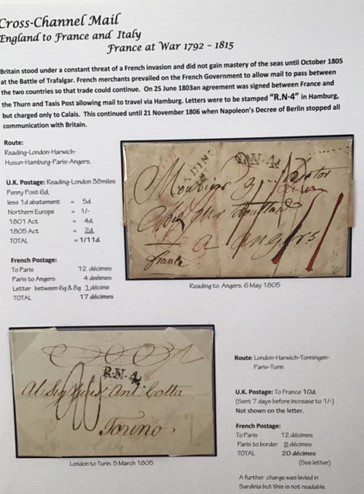 Cross-Channel Mail
England to France and Italy
France at War 1792 - 1815
Britain stood under a constant threat of a French invasion and did not gain mastery of the seas until October 1805
at the Battle of Trafalgar. French merchants prevailed on the French Government to allow mail to pass between
the two countries so that trade could continue. On 25 June 1803an agreement was signed between France and
the Thurn and Taxis Post allowing mail to travel via Hamburg. Letters were to be stamped "R.N-4" in Hamburg,
but charged only to Calais. This continued until 21 November 1806 when Napoleon's Decree of Berlin stopped all
communication with Britain.
Route:
Reading-London-Harwich-
Husun-Hamburg-Paris-Angers.
U.K. Postage: Reading-London 38miles
Penny Post 6d.
less 1d abatement = 5d
Northern Europe = 1/-
1801 Act = 4d
1805 Act = 2d
TOTAL = 1/11d
French Postage:
To Paris 12 décimes
Paris to Angers 4 decimes
Letter between 6g & 8g 1 décime
TOTAL 17 décimes
R.N-4.
Monsieur
a angers
france
Reading to Angers. 6 May 1805
R.N-4
20
Al Sig
Ant. Cotta
Torino
London to Turin. 5 March 1805
Route: London-Harwich-Tonningen-
Paris-Turin
U.K. Postage: To France 10d.
(Sent 7 days before increase to 1/-)
Not shown on the letter.
French Postage:
To Paris 12 décimes
Paris to border 8 décimes
TOTAL 20 décimes
(See letter)
A further charge was levied in
Sardinia but this is not readable.